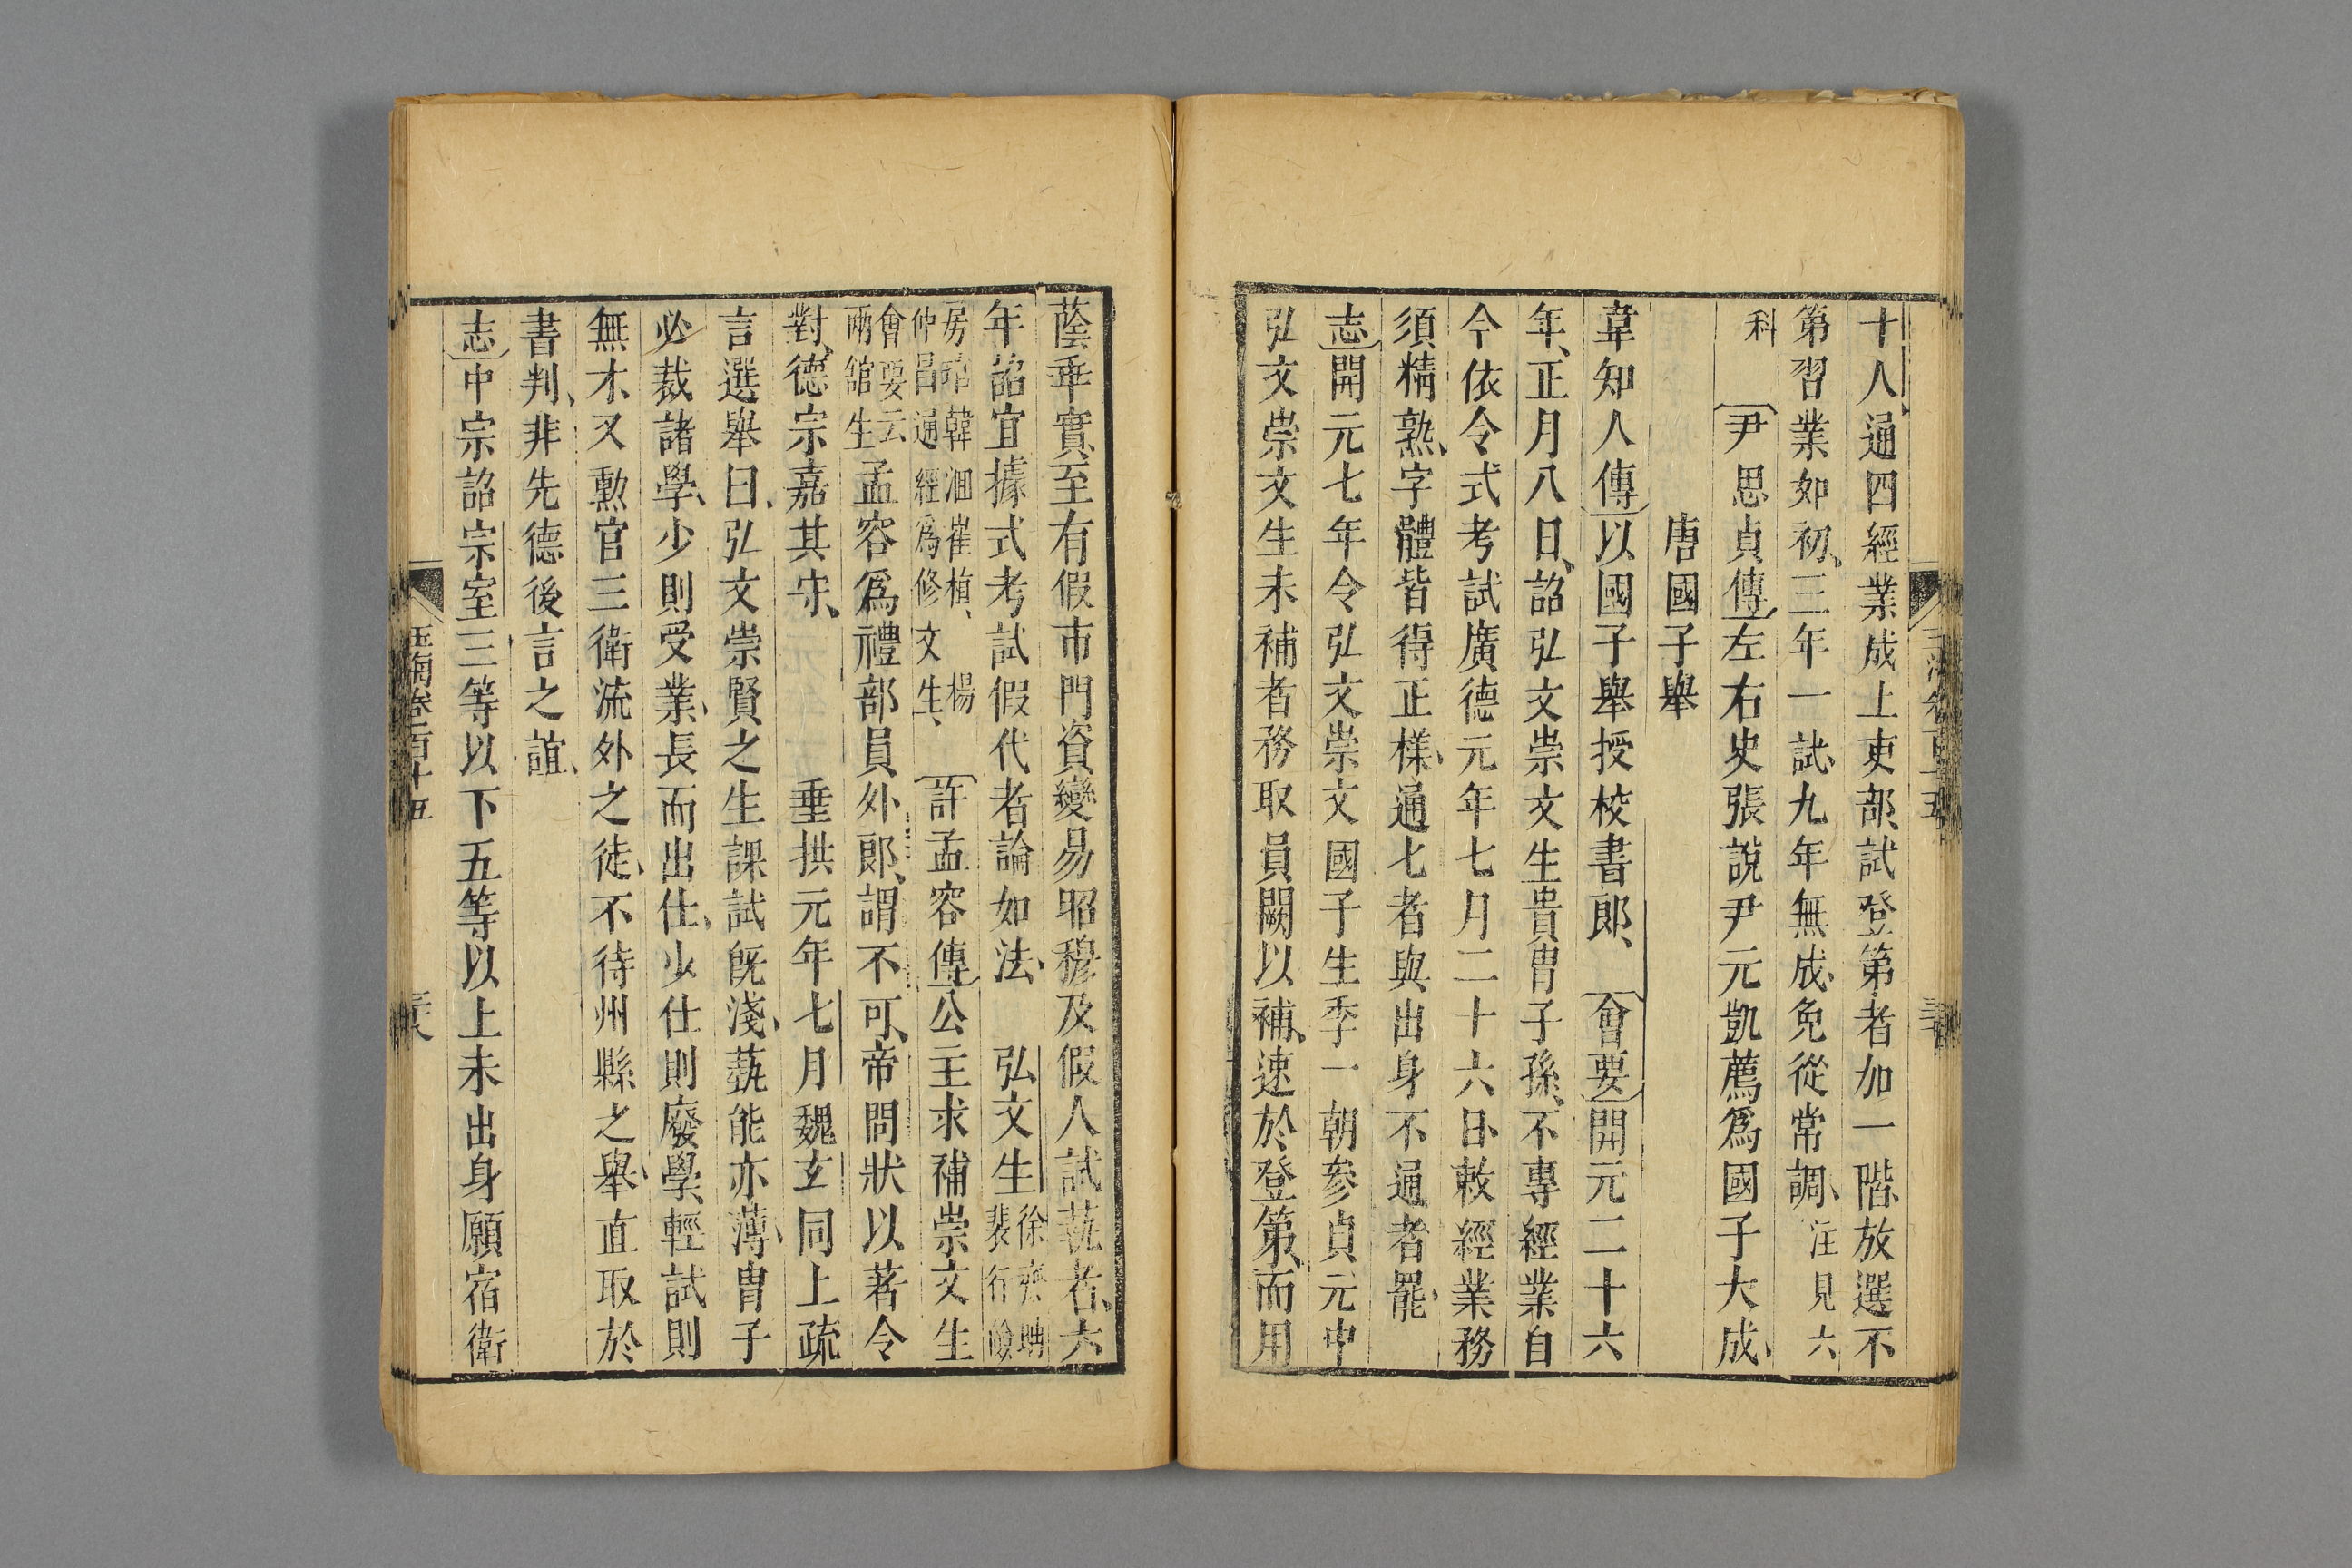 十人通四經業成上吏部試登第者加一階放選不
第習業如初三年一試九年無成免從常調注見六
科　尹思貞傳左右史張說尹元凱薦爲國子大成
唐國子舉
韋知人傳以國子舉授校書郎　會要開元二十六
年正月八日詔弘文崇文生貴胄子孫不專經業自
今依令式考試廣德元年七月二十六日敕經業務
須精熟字體皆得正樣通七者與出身不通者罷
志開元七年令弘文崇文國子生季一朝參貞元中
弘文崇文生未補者務取員闕以補速於登第而用
蔭乖實至有假市門資變易昭穆及假人試藝者六
年詔宜據式考試假代者論如法　弘文生徐齊聃
裴行儉
房琯韓洄崔植楊
仲昌通經爲修文生　許孟容傳公主求補崇文生
會要云
兩館生孟容爲禮部員外郎謂不可帝問狀以著令
對德宗嘉其守　垂拱元年七月魏玄同上疏
言選舉曰弘文崇賢之生課試既淺藝能亦薄胄子
必裁諸學少則受業長而出仕少仕則廢學輕試則
無才又勲官三衛流外之徒不待州縣之舉直取於
書判非先德後言之誼
志中宗詔宗室三等以下五等以上未出身願宿衛
玉海卷二百十五